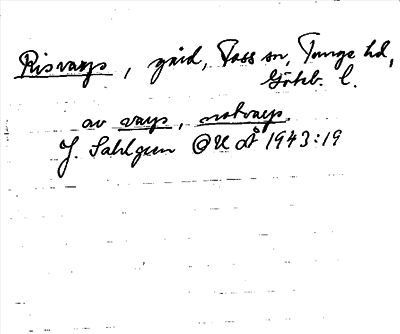 Risvags, gård, Foss sn, Tunge hd,
Göteb. l.
av vags, notvags.
J. Sahlgren OUÅ 1943:19